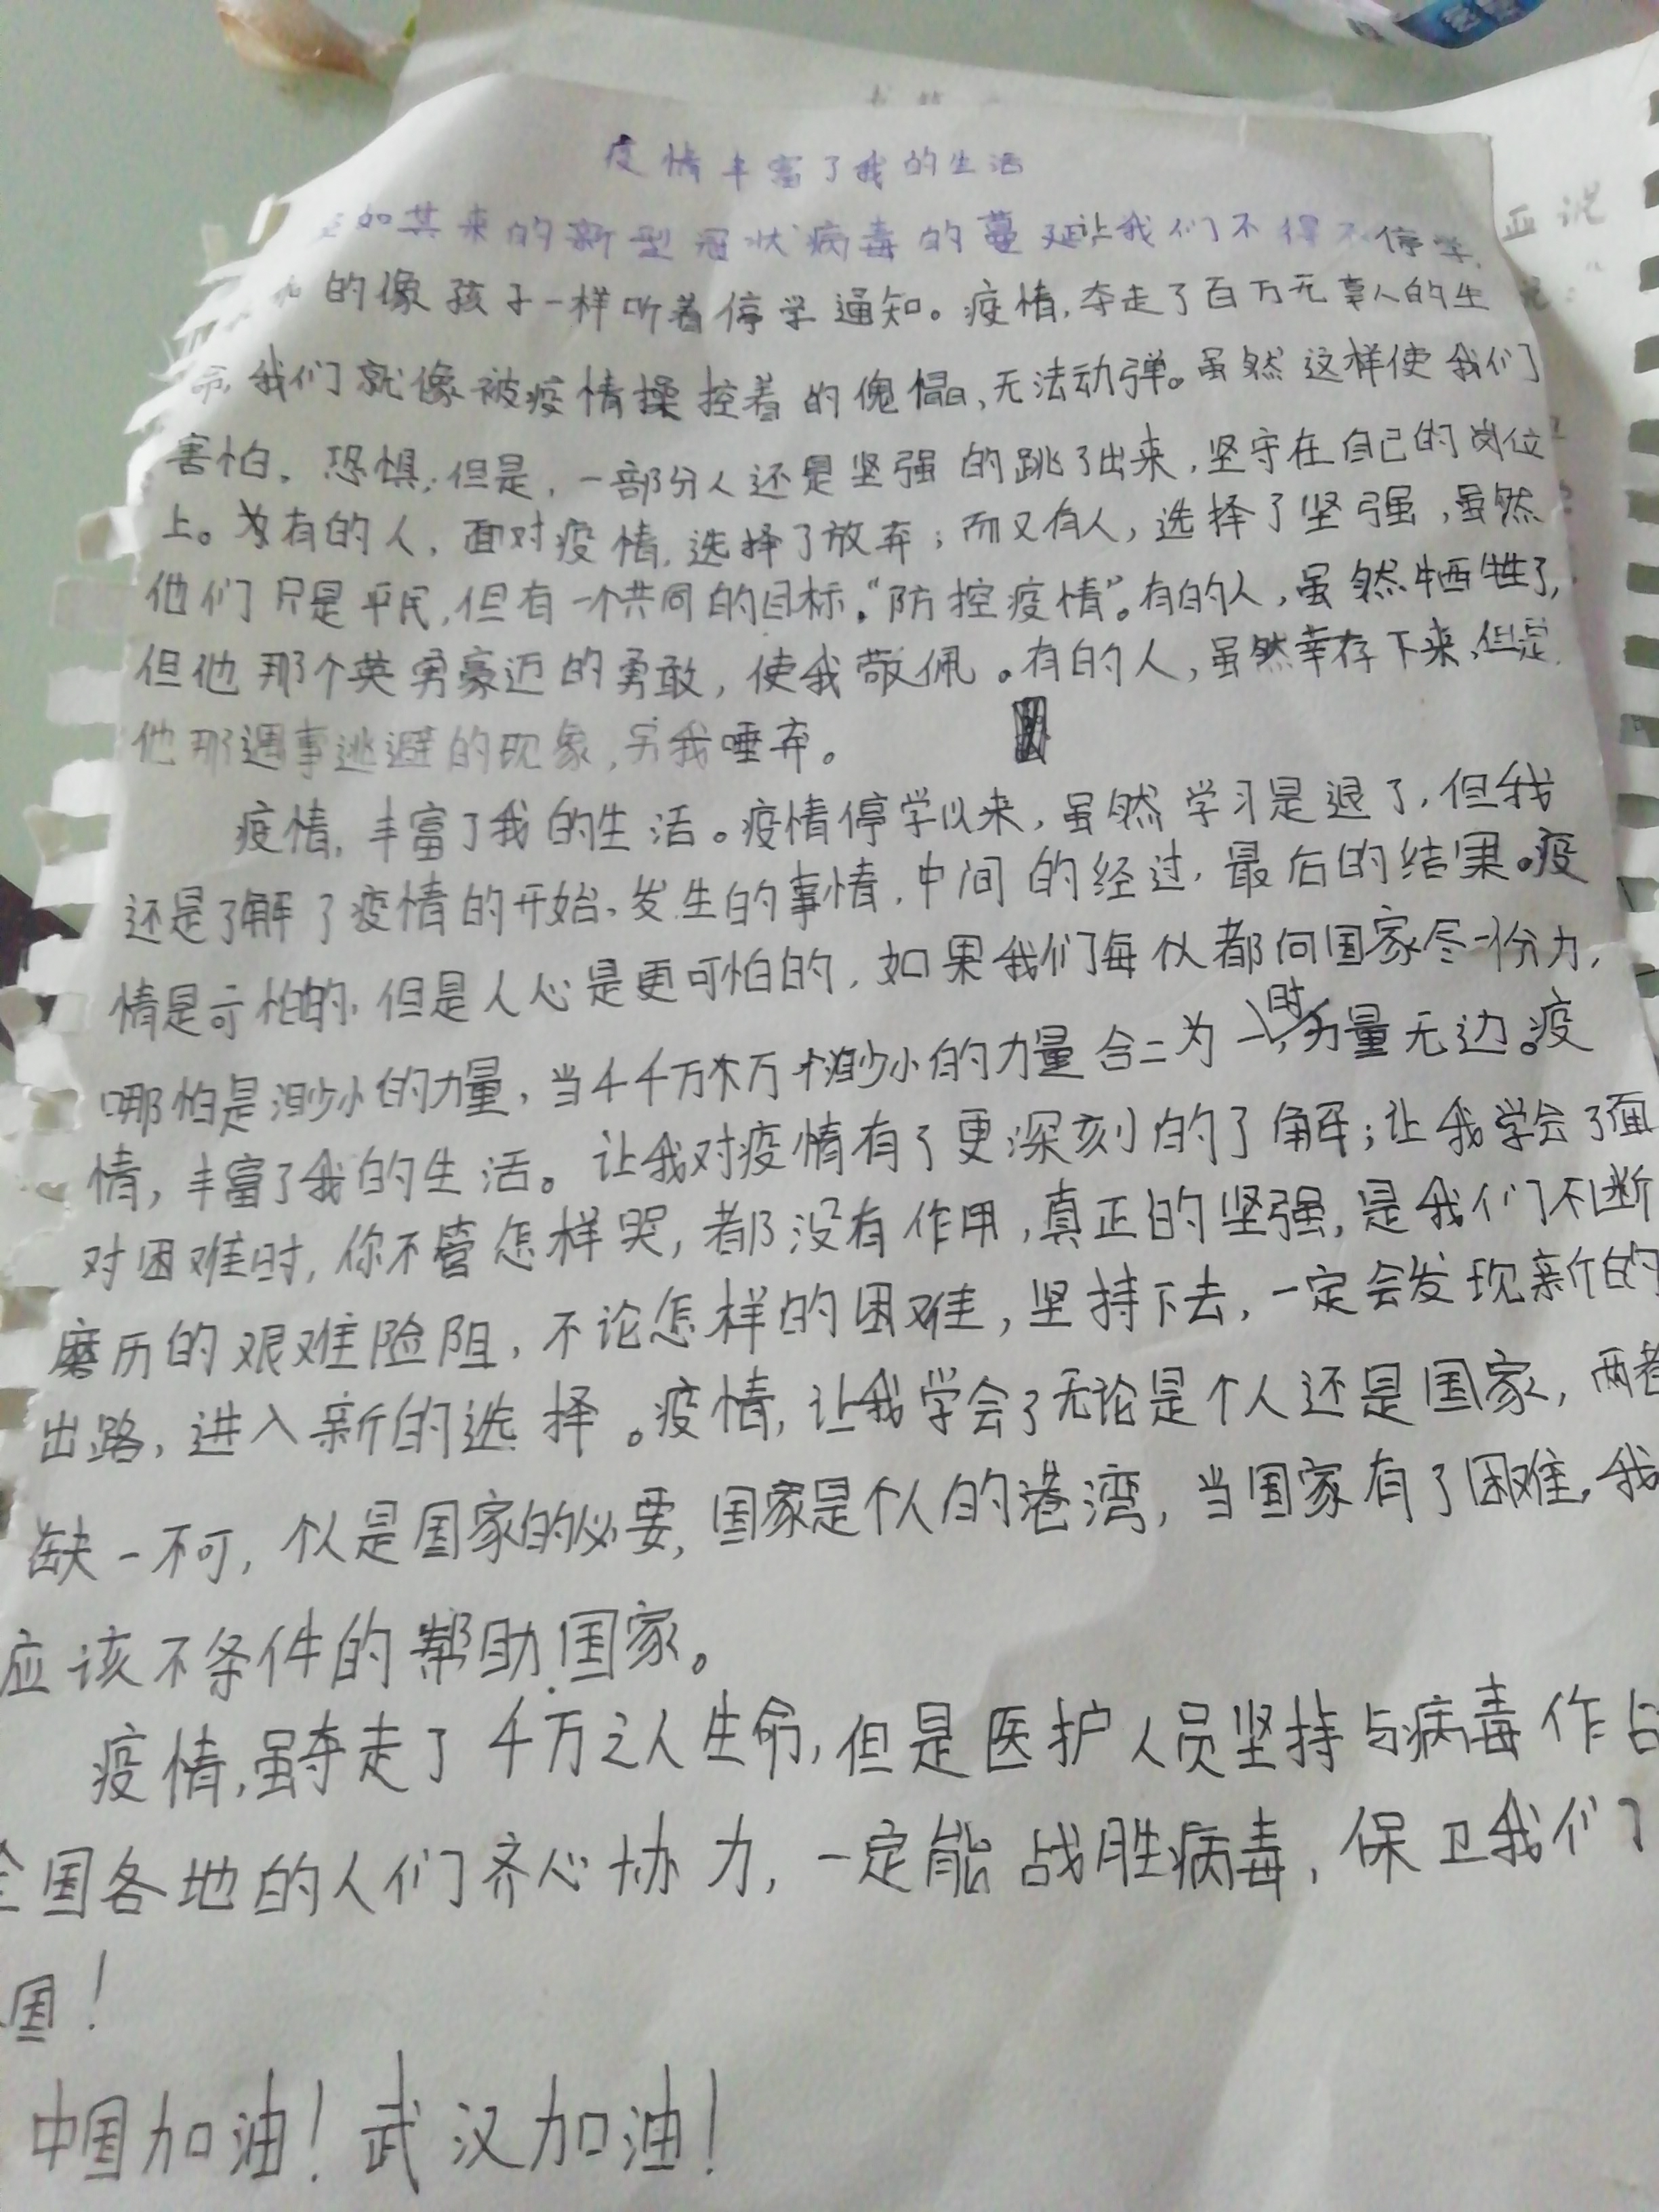 疫情丰富了我的生活
如其来的新型冠状病毒的蔓延让我们不得不停学,
的像孩子一样听着停学通知。疫情,夺走了百万无辜人的生
命,我们就像被疫情操控着的傀儡,无法动弹。虽然这样使我们
害怕,恐惧,但是,一部分人还是坚强的跳了出来,坚守在自己的岗位
上。有的人,面对疫情,选择了放弃;而又有人,选择了坚强,虽然
他们只是平民,但有一个共同的目标,“防控疫情”。有的人,虽然牺牲了,
但他那个英勇豪迈的勇敢,使我敬佩。有的人,虽然幸存下来,但是
他那遇事逃避的现象,另我唾弃。
疫情,丰富了我的生活。疫情停学以来,虽然学习是退了,但我
还是了解了疫情的开始,发生的事情,中间的经过,最后的结果。疫
情是可怕的,但是人心是更可怕的,如果我们每个人都向国家尽一份力,
哪怕是渺小的力量,当千千万万个渺小的力量合二为一时,力量无边。疫
情,丰富了我的生活。让我对疫情有了更深刻的了解;让我学会了面
对困难时,你不管怎样哭,都没有作用,真正的坚强,是我们不断
磨历的艰难险阻,不论怎样的困难,坚持下去,一定会发现新的
出路,进入新的选择。疫情,让我学会了无论是个人还是国家,两者
缺一不可,个人是国家的必要,国家是个人的港湾,当国家有了困难,我
应该不条件的帮助国家。
疫情,虽夺走了千万之人生命,但是医护人员坚持与病毒作
全国各地的人们齐心协力,一定能战胜病毒,保卫我们
国!
中国加油!武汉加油!